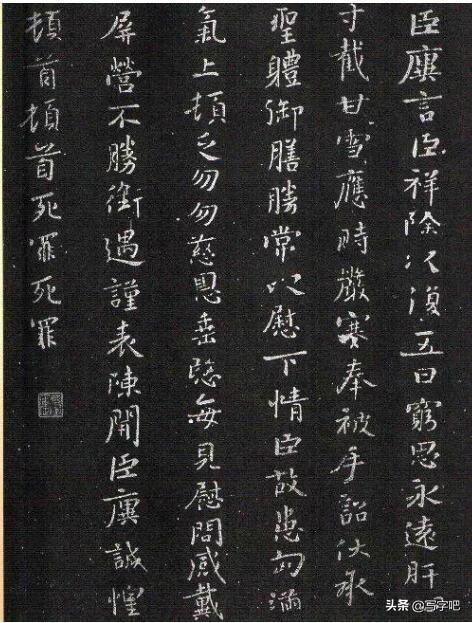 臣廙言臣祥除以復五日窮思永遠肝心
寸截甘雪應時嚴寒奉被手詔伏承
聖體御膳勝常以慰下情臣故患匈滿
氣上頓乏勿勿慈恩垂愍每見慰問感戴
屏營不勝銜遇謹表陳聞臣廙誠惶
頓首頓首死罪死罪
头条 @写字吧